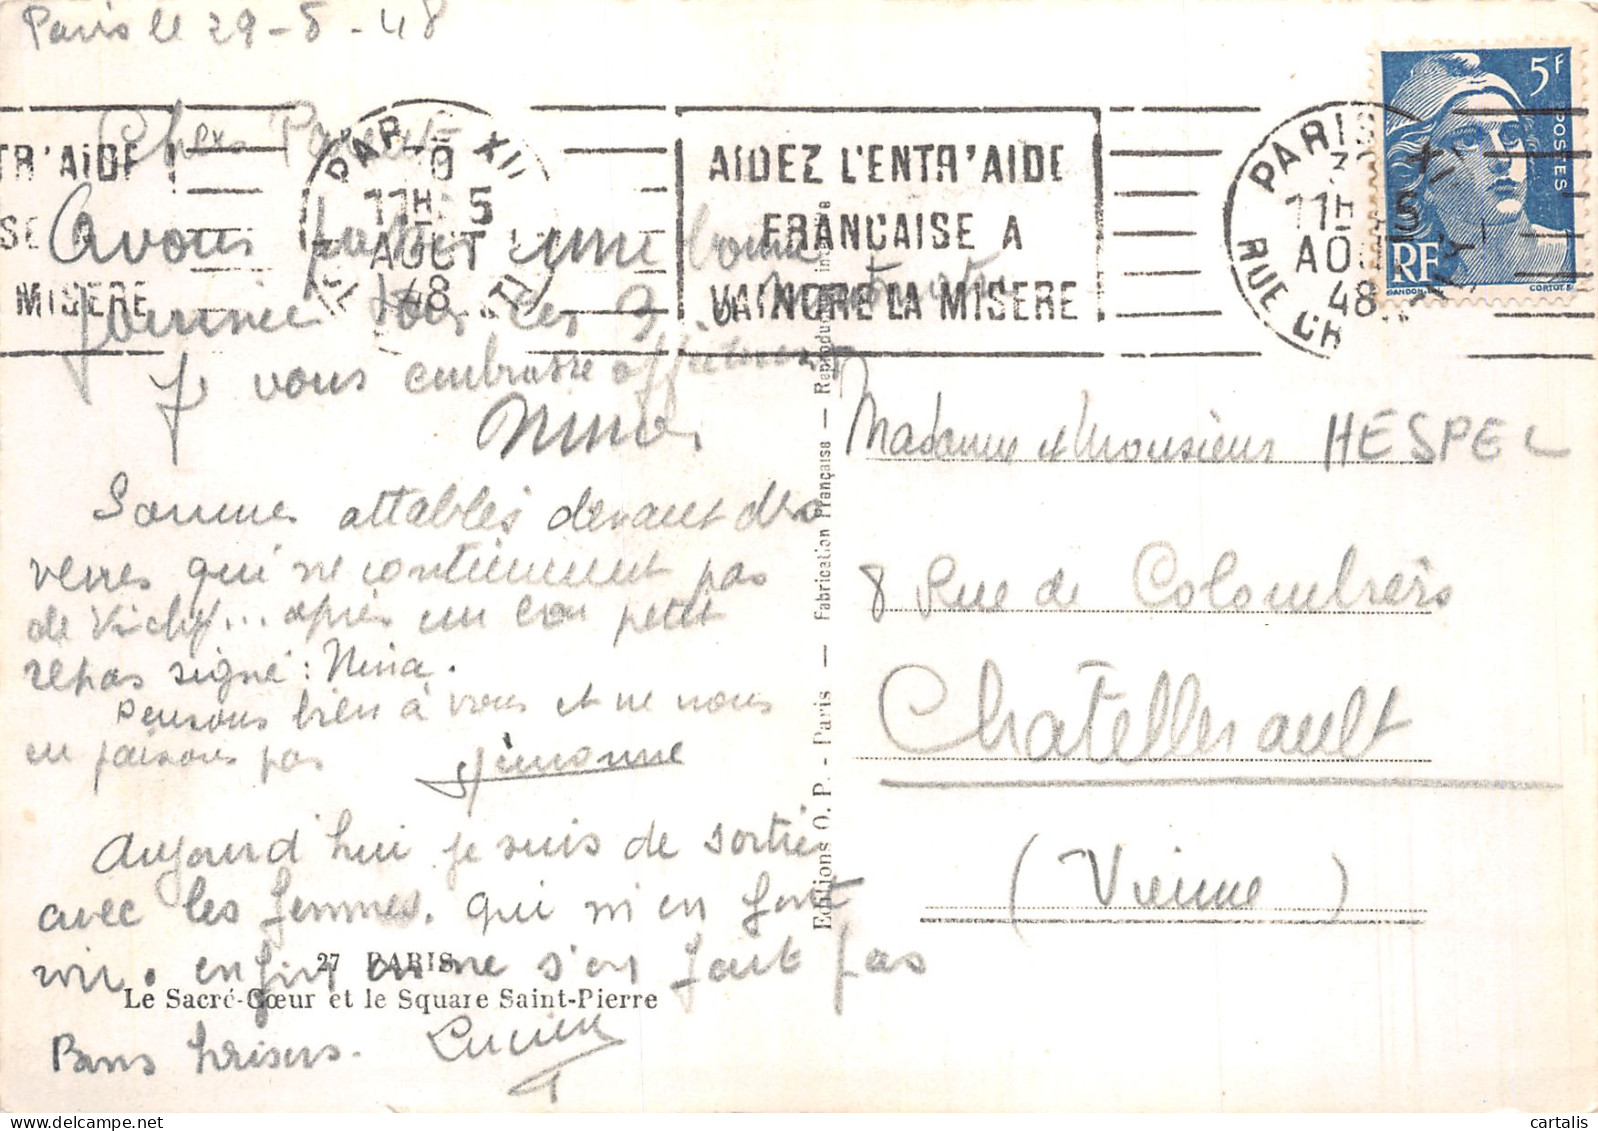 Paris le 29-8-48
Chers Parents
Avons passé une bonne
journée tous les 3
Je vous embrasse affectueusement
Nina
Sommes attablés devant des
verres qui ne contiennent pas
de Vichy... après un bon petit
repas signé : Nina.
Pensons bien à vous et ne nous
en faisons pas Simonne
Aujourd'hui je suis de sortie
avec les femmes. qui m'en font
voir. enfin on ne s'en fait pas
Bons baisers. Lucien
27 PARIS
Le Sacré-Cœur et le Square Saint-Pierre
Editions O. P. - Paris — Fabrication Française — Reproduction interdite
TR'AIDE
SE A
MISERE
PARIS XII
11H 5
AOUT
48
AIDEZ L'ENTR'AIDE
FRANCAISE A
VAINCRE LA MISERE
PARIS
11H 5
AO
48
RUE CR
5F
POSTES
RF
GANDON
CORTOT
Madame et Monsieur HESPEL
8 Rue de Colombiers
Chatellerault
(Vienne)
cartalis